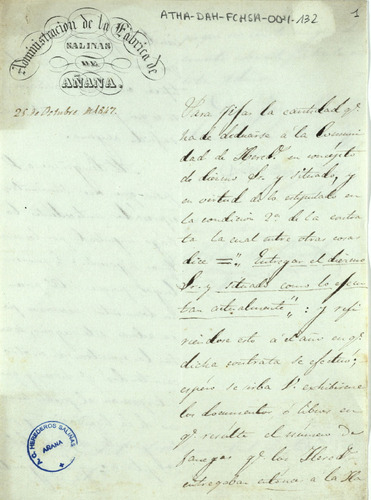 ATHA-DAH-FCHSH-004-132
1
Administracion de la Fabrica de
SALINAS
DE
AÑANA.
25 de Octubre de 1847.
Para fijar la cantidad qe.
ha de abonarse á la Comuni
dad de Hered.s en concepto
de diezmo Sr. y situado, y
en virtud de lo estipulado en
la condicion 2.a de la contra
ta la cual entre otras cosas
dice =,, Entregar el diezmo
Sr. y situado como lo efecu
tban actualmente,, : y refi
riendose esto á el año en qe.
dicha contrata se efectuó;
espero se sirba V. exhibirme
los documentos ó libros en
qe. resulte el número de
fanegas qe. los Hered.s
entregaban entonces á la Ha
Y G. HEREDEROS SALINAS
AÑANA